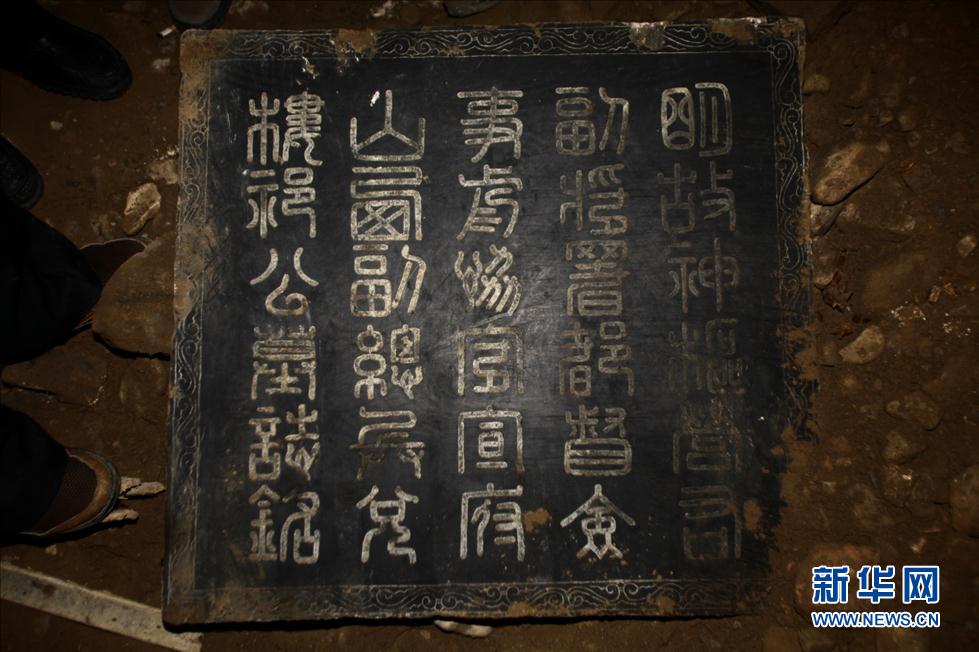 明故神樞營右
副將署都督僉
事前協守宣府
山西副總兵
樓祁公墓誌銘
新华网
WWW.NEWS.CN